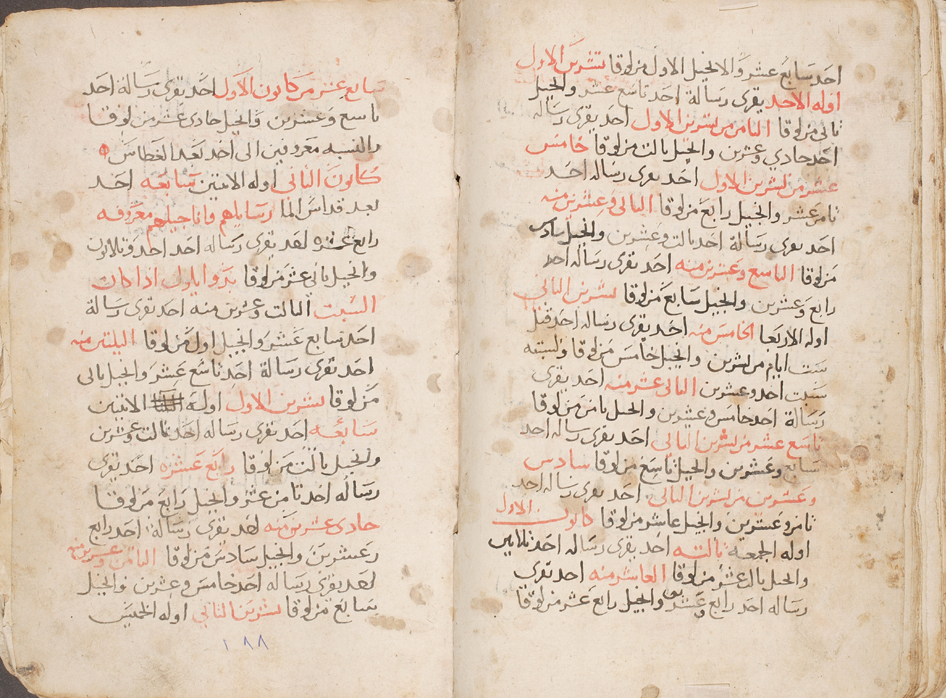 احد سابع عشر والانجيل الاول من لوقا تشرين الاول
اوله الاحد يقرى رسالة احد تاسع عشر والانجيل
ثاني من لوقا الثامن من تشرين الاول احد يقرى رسالة
احد حادي وعشرين والانجيل ثالث من لوقا خامس
عشر من تشرين الاول احد يقرى رساله احد
ثامن عشر والانجيل رابع من لوقا الثاني وعشرين منه
احد يقرى رسالة احد ثالث وعشرين والانجيل سادس
من لوقا التاسع وعشرين منه احد يقرى رساله احد
رابع وعشرين والانجيل سابع من لوقا تشرين الثاني
اوله الاربعا الخامس منه احد يقرى رساله احد قبل
ست ايام من تشرين والانجيل خامس من لوقا
سبت احد وعشرين الثاني عشر منه احد يقرى
رسالة احد خامس وعشرين والانجيل ثامن من لوقا
تاسع عشر من تشرين الثاني احد يقرى رساله احد
سابع وعشرين والانجيل تاسع من لوقا سادس
وعشرين من تشرين الثاني احد يقرى رساله احد
ثامن وعشرين والانجيل عاشر من لوقا كانون الاول
اوله الجمعه ثالثه احد يقرى رساله احد ثلاثين
والانجيل ثالث عشر من لوقا العاشر منه احد يقرى
رساله احد رابع وعشرين والانجيل رابع عشر من لوقا
سابع عشر من كانون الاول احد يقرى رسالة احد
تاسع وعشرين والانجيل حادي عشر من لوقا
والنسبه معروفين الى احد بعد الغطاس
كانون الثاني اوله الاثنين سابعه احد
بعد قداس الما رسايلهم واناجيلهم معروفه
رابع عشره احد يقرى رساله احد احد وثلاثون
والانجيل ثاني عشر من لوقا بدو ايلول اذا كان
السبت الثالث وعشرين منه احد يقرى رسالة
احد سابع عشر والانجيل اول من لوقا الثلثين منه
احد تقرى رسالة احد تاسع عشر والانجيل ثاني
من لوقا تشرين الاول اوله الاثنين
سابعه احد تقرى رساله احد ثالث وعشرين
والانجيل ثالث من لوقا رابع عشره احد تقرى
رساله احد ثامن عشر والانجيل رابع من لوقا
حادى عشرين منه احد يقرى رسالة احد رابع
وعشرين والانجيل سادس من لوقا الثامن وعشرين منه
احد يقرى رساله احد خامس وعشرين والانجيل
سابع من لوقا تشرين الثاني اوله الخميس
١٨٨